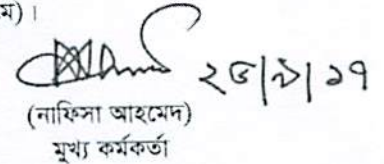 ম)।
২৬/৯/১৭
(নাফিসা আহমেদ)
মুখ্য কর্মকর্তা